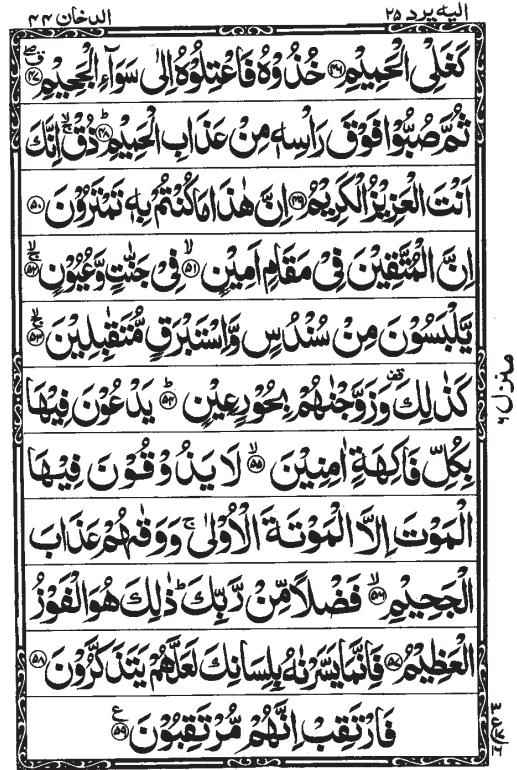 اليه يرد ٢٥
الدخان ٤٤
كَغَلْىِ الْحَمِيْمِ ﴿٤٦﴾ خُذُوْهُ فَاعْتِلُوْهُ اِلٰى سَوَآءِ الْجَحِيْمِ ﴿٤٧﴾
ثُمَّ صُبُّوْا فَوْقَ رَاْسِهٖ مِنْ عَذَابِ الْحَمِيْمِ ﴿٤٨﴾ؕ ذُقْ ۙۚ اِنَّكَ
اَنْتَ الْعَزِيْزُ الْكَرِيْمُ ﴿٤٩﴾ اِنَّ هٰذَا مَا كُنْتُمْ بِهٖ تَمْتَرُوْنَ ﴿٥٠﴾
اِنَّ الْمُتَّقِيْنَ فِىْ مَقَامٍ اَمِيْنٍ ﴿٥١﴾ۙ فِىْ جَنّٰتٍ وَّعُيُوْنٍ ﴿٥٢﴾ۙۚ
يَّلْبَسُوْنَ مِنْ سُنْدُسٍ وَّاِسْتَبْرَقٍ مُّتَقٰبِلِيْنَ ﴿٥٣﴾ۙۚ
كَذٰلِكَ وَزَوَّجْنٰهُمْ بِحُوْرٍ عِيْنٍ ﴿٥٤﴾ؕ يَدْعُوْنَ فِيْهَا
بِكُلِّ فَاكِهَةٍ اٰمِنِيْنَ ﴿٥٥﴾ۙ لَا يَذُوْقُوْنَ فِيْهَا
الْمَوْتَ اِلَّا الْمَوْتَةَ الْاُوْلٰى ۚ وَوَقٰىهُمْ عَذَابَ
الْجَحِيْمِ ﴿٥٦﴾ۙ فَضْلًا مِّنْ رَّبِّكَ ؕ ذٰلِكَ هُوَ الْفَوْزُ
الْعَظِيْمُ ﴿٥٧﴾ فَاِنَّمَا يَسَّرْنٰهُ بِلِسَانِكَ لَعَلَّهُمْ يَتَذَكَّرُوْنَ ﴿٥٨﴾
فَارْتَقِبْ اِنَّهُمْ مُّرْتَقِبُوْنَ ﴿٥٩﴾ ع
منزل ٦